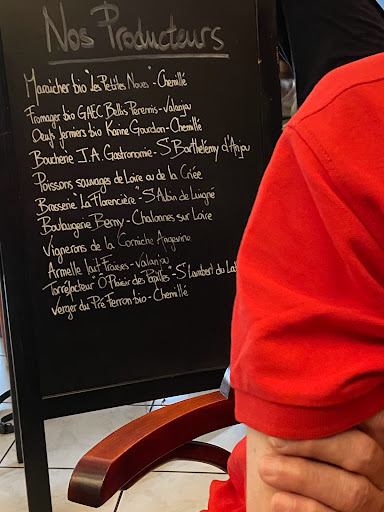 Nos Producteurs
Maraîcher bio "Les Petites Noues" - Chemillé
Fromages bio GAEC Bellis Perennis - Valanjou
Oeufs fermiers bio Karine Gourdon - Chemillé
Boucherie J.A. Gastronomie - St Barthélémy d'Anjou
Poissons sauvages de Loire ou de la Criée
Brasserie La Florencière - St Aubin de Luigné
Boulangerie Berny - Chalonnes sur Loire
Vignerons de la Corniche Angevine
Armelle Fruit Fraises - Valanjou
Torréfacteur "O Plaisir des Papilles" St Lambert du Lat
Verger du Pré Ferron bio - Chemillé